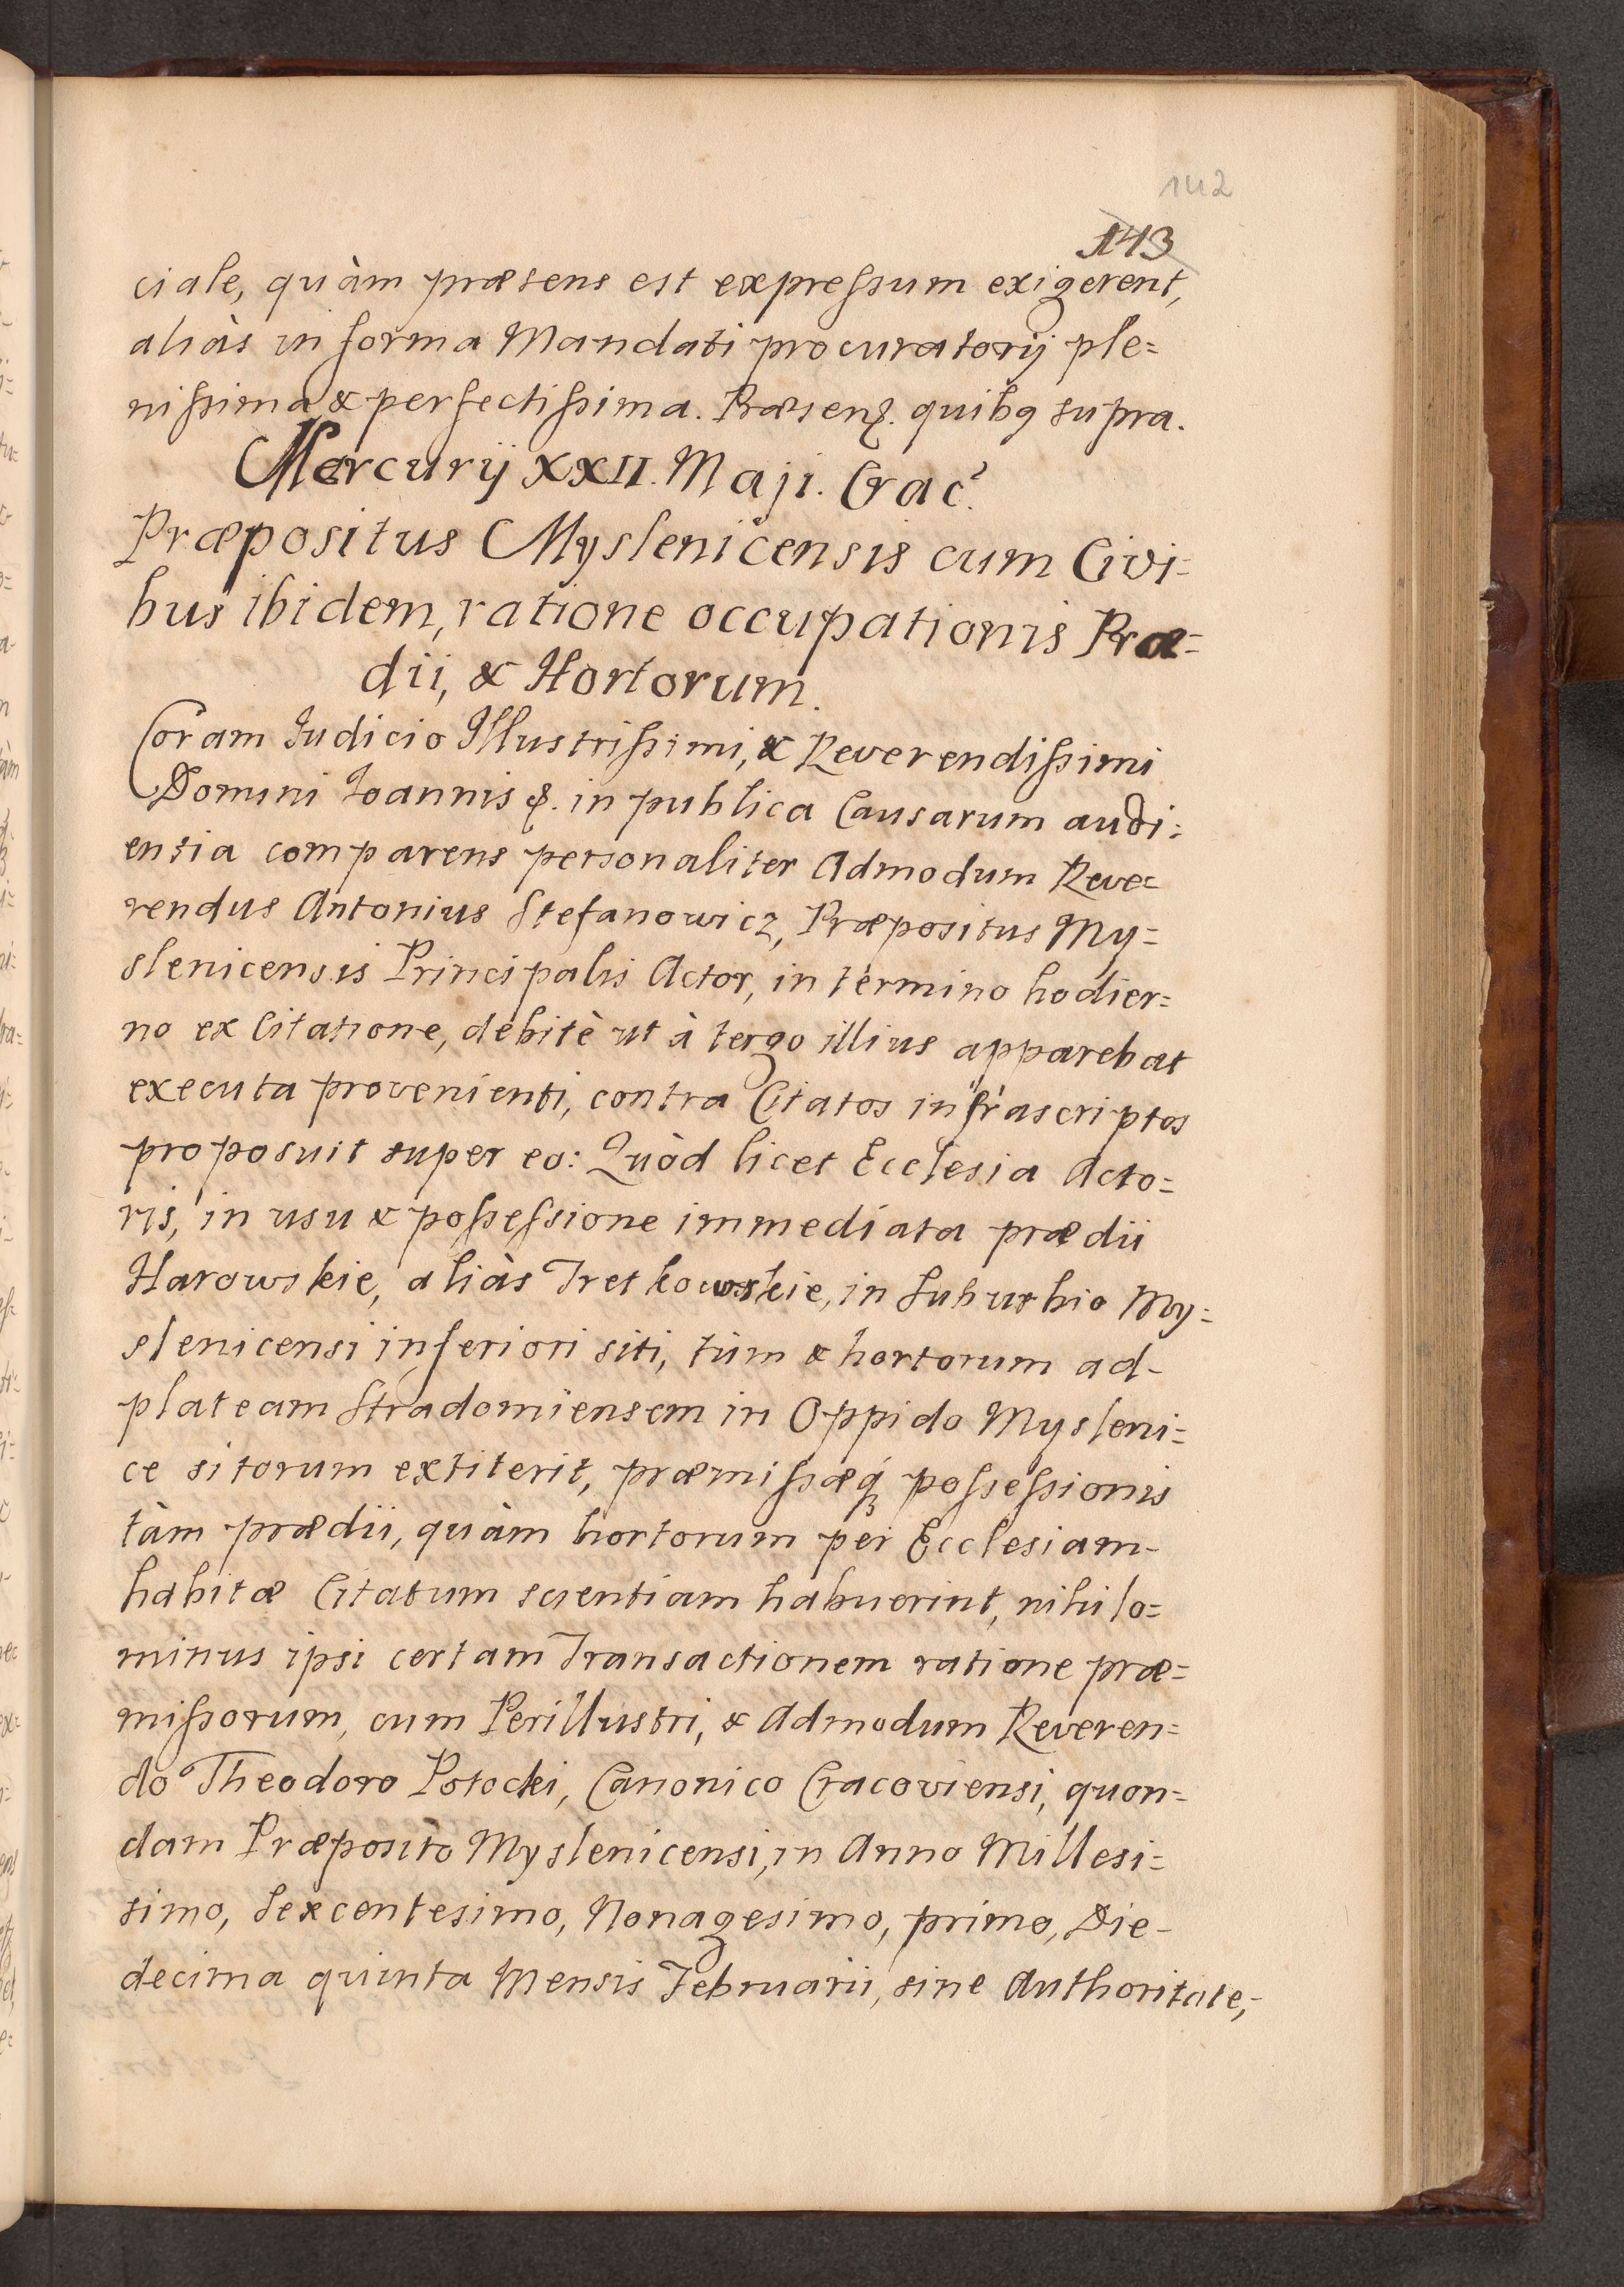 142
143
ciale, quàm præsens est expressum exigerent,
aliàs in forma Mandati procuratorij ple=
nissima & perfectissima. Præsen&. quibq supra.
Mercurij XXII. Maji. Crac.
Præpositus Myslenicensis cum Civi=
bus ibidem, ratione occupationis Præ=
dii, & Hortorum.
Coram Iudicio Illustrissimi, & Reverendissimi
Domini Ioannis &. in publica Causarum audi=
entia comparens personaliter Admodum Reve=
rendus Antonius Stefanowicz, Præpositus My=
slenicensis Principalis Actor, in termino hodier=
no ex Citatione, debitè ut à tergo illius apparebat
executa provenienti, contra Citatos infrascriptos
proposuit super eo: Quòd licet Ecclesia Acto=
ris, in usu & possessione immediata prædii
Harowskie, aliàs Tretkowskie, in Suburbio My=
slenicensi inferiori siti, tùm & hortorum ad-
plateam Stradomiensem in Oppido Mysleni=
ce sitorum extiterit, præmissæq́ꝫ possessionis
tàm prædii, quàm hortorum per Ecclesiam-
habitæ Citatum scientiam habuerint, nihilo=
minus ipsi certam Transactionem ratione præ=
missorum, cum Perillustri, & Admodum Reveren=
do Theodoro Potocki, Canonico Cracoviensi, quon=
dam Præposito Myslenicensi, in Anno Millesi=
simo, Sexcentesimo, Nonagesimo, primo, Die-
decima quinta Mensis Februarii, sine Authoritate,-